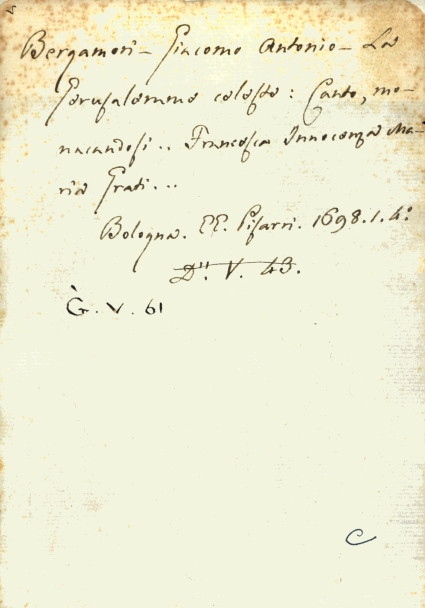 Bergamori - Giacomo Antonio - La
Gerusalemme celeste : Canto, mo-
nacandosi .. Francesca Innocenza Ma-
ria Grati ...
Bologna. EE. Pisarri. 1698. 1. 4º
D". V. 43.
G. V. 61
C